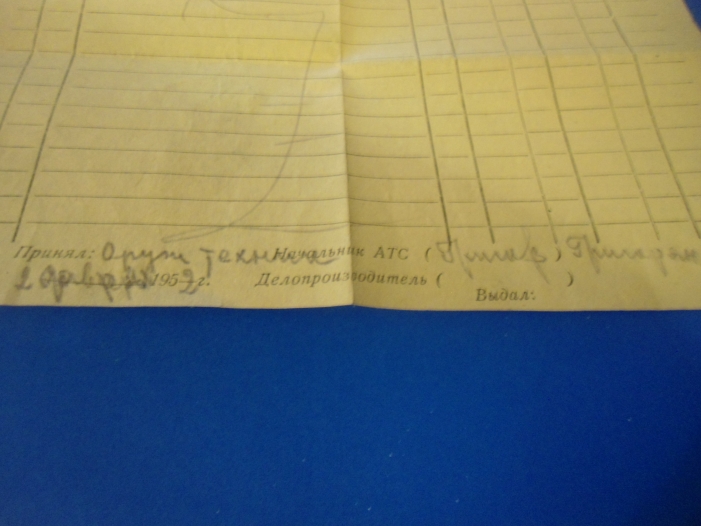 Принял: Оруж техник Начальник АТС ( ) Григорян
2 февраля 1952 г. Делопроизводитель ( )
Выдал: